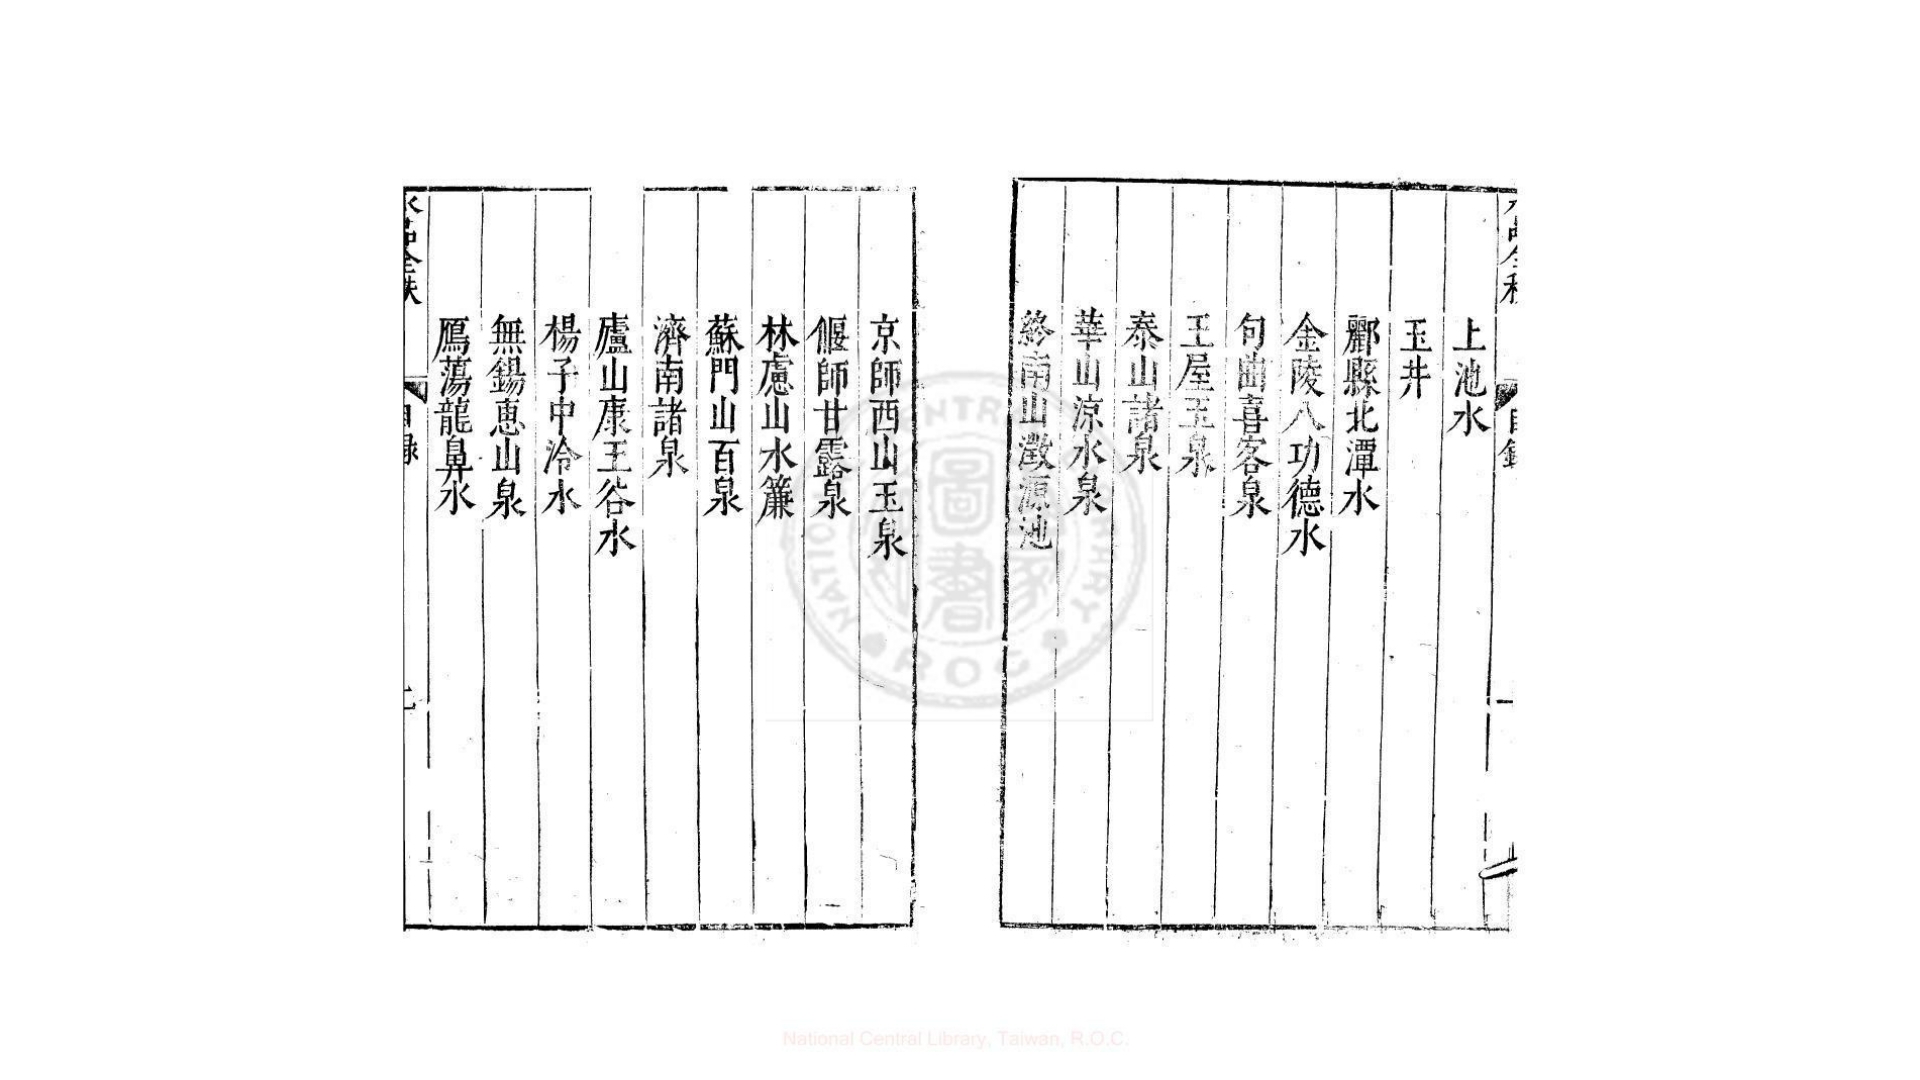 上池水
玉井
酈縣北潭水
金陵八功德水
句曲喜客泉
王屋玉泉
泰山諸泉
華山涼水泉
終南山澂源池
京師西山玉泉
偃師甘露泉
林慮山水簾
蘇門山百泉
濟南諸泉
廬山康王谷水
楊子中泠水
無錫惠山泉
鴈蕩龍鼻水
水品全秩
目錄
圖書
NATIONAL CENTRAL LIBRARY
R.O.C
National Central Library, Taiwan, R.O.C.